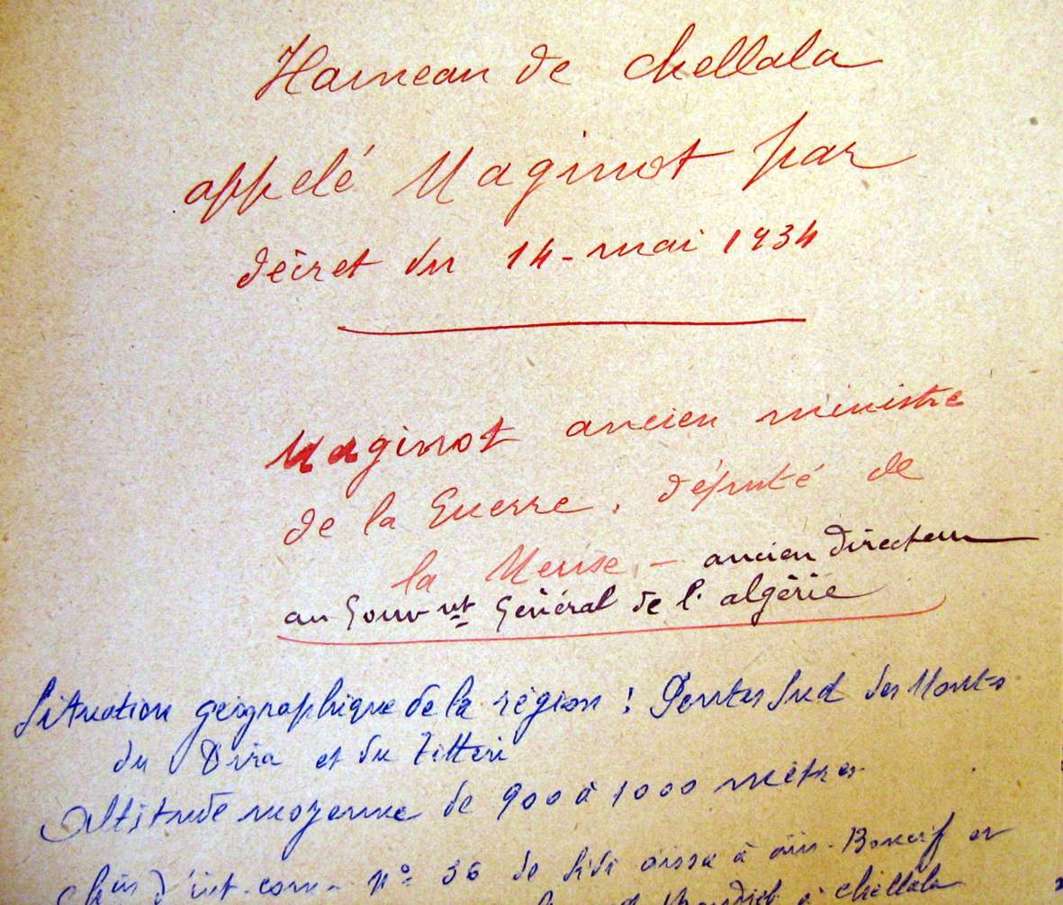 Hameau de chellala
appelé Maginot par
décret du 14-mai 1934
Maginot ancien ministre
de la Guerre, député de
la Meuse, - ancien directeur
au Gouv nt Général de l'algérie
Situation géographique de la région : Pentes Sud des Monts
du Dira et du Titteri
Altitude moyenne de 900 à 1000 mètres
Chin d'int. com - n° 36 de Sidi aïssa à aïn-Boucif et
à chellala